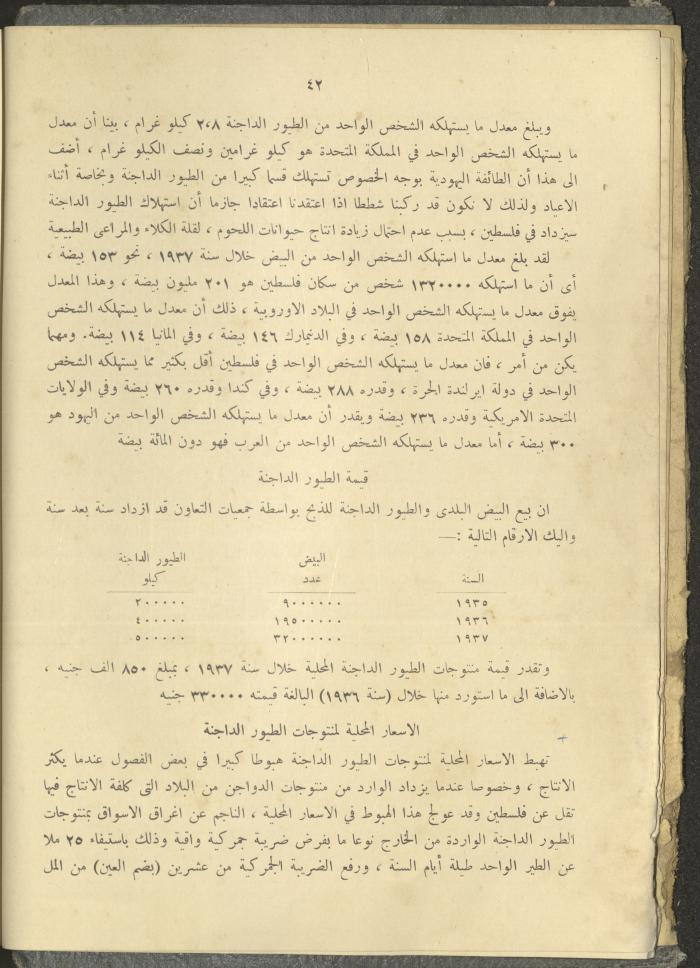 ٤٢
ويبلغ معدل ما يستهلكه الشخص الواحد من الطيور الداجنة ٢،٨ كيلو غرام ، بينا أن معدل
ما يستهلكه الشخص الواحد في المملكة المتحدة هو كيلو غرامين ونصف الكيلو غرام ، أضف
الى هذا أن الطائفة اليهودية بوجه الخصوص تستهلك قسما كبيرا من الطيور الداجنة وبخاصة أثناء
الاعياد ولذلك لا نكون قد ركبنا شططا اذا اعتقدنا اعتقادا جازما أن استهلاك الطيور الداجنة
سيزداد في فلسطين ، بسبب عدم احتمال زيادة انتاج حيوانات اللحوم ، لقلة الكلاء والمراعى الطبيعية
لقد بلغ معدل ما استهلكه الشخص الواحد من البيض خلال سنة ١٩٣٧ ، نحو ١٥٣ بيضة ،
أى أن ما استهلكه ١٣٢٠٠٠٠ شخص من سكان فلسطين هو ٢٠١ مليون بيضة ، وهذا المعدل
يفوق معدل ما يستهلكه الشخص الواحد في البلاد الاوروبية ، ذلك أن معدل ما يستهلكه الشخص
الواحد في المملكة المتحدة ١٥٨ بيضة ، وفي الدنيمارك ١٤٦ بيضة ، وفي المانيا ١١٤ بيضة. ومهما
يكن من أمر ، فان معدل ما يستهلكه الشخص الواحد في فلسطين أقل بكثير مما يستهلكه الشخص
الواحد في دولة ايرلندة الحرة ، وقدره ٢٨٨ بيضة ، وفي كندا وقدره ٢٦٠ بيضة وفي الولايات
المتحدة الامريكية وقدره ٢٣٦ بيضة ويقدر أن معدل ما يستهلكه الشخص الواحد من اليهود هو
٣٠٠ بيضة ، أما معدل ما يستهلكه الشخص الواحد من العرب فهو دون المائة بيضة
قيمة الطيور الداجنة
ان بيع البيض البلدى والطيور الداجنة للذبح بواسطة جمعيات التعاون قد ازداد سنة بعد سنة
واليك الارقام التالية :—
البيض الطيور الداجنة
السنة عدد كيلو
١٩٣٥ ٩٠٠٠٠٠٠ ٢٠٠٠٠٠
١٩٣٦ ١٩٥٠٠٠٠٠ ٤٠٠٠٠٠
١٩٣٧ ٣٢٠٠٠٠٠٠ ٥٠٠٠٠٠
وتقدر قيمة منتوجات الطيور الداجنة المحلية خلال سنة ١٩٣٧ ، بمبلغ ٨٥٠ الف جنيه ،
بالاضافة الى ما استورد منها خلال (سنة ١٩٣٦) البالغة قيمته ٣٣٠٠٠٠ جنيه
الاسعار المحلية لمنتوجات الطيور الداجنة
تهبط الاسعار المحلية لمنتوجات الطيور الداجنة هبوطا كبيرا في بعض الفصول عندما يكثر
الانتاج ، وخصوصا عندما يزداد الوارد من منتوجات الدواجن من البلاد التى كلفة الانتاج فيها
تقل عن فلسطين وقد عولج هذا الهبوط في الاسعار المحلية ، الناجم عن اغراق الاسواق بمنتوجات
الطيور الداجنة الواردة من الخارج نوعا ما بفرض ضريبة جمركية واقية وذلك باستيفاء ٢٥ ملا
عن الطير الواحد طيلة أيام السنة ، ورفع الضريبة الجمركية من عشرين (بضم العين) من المل